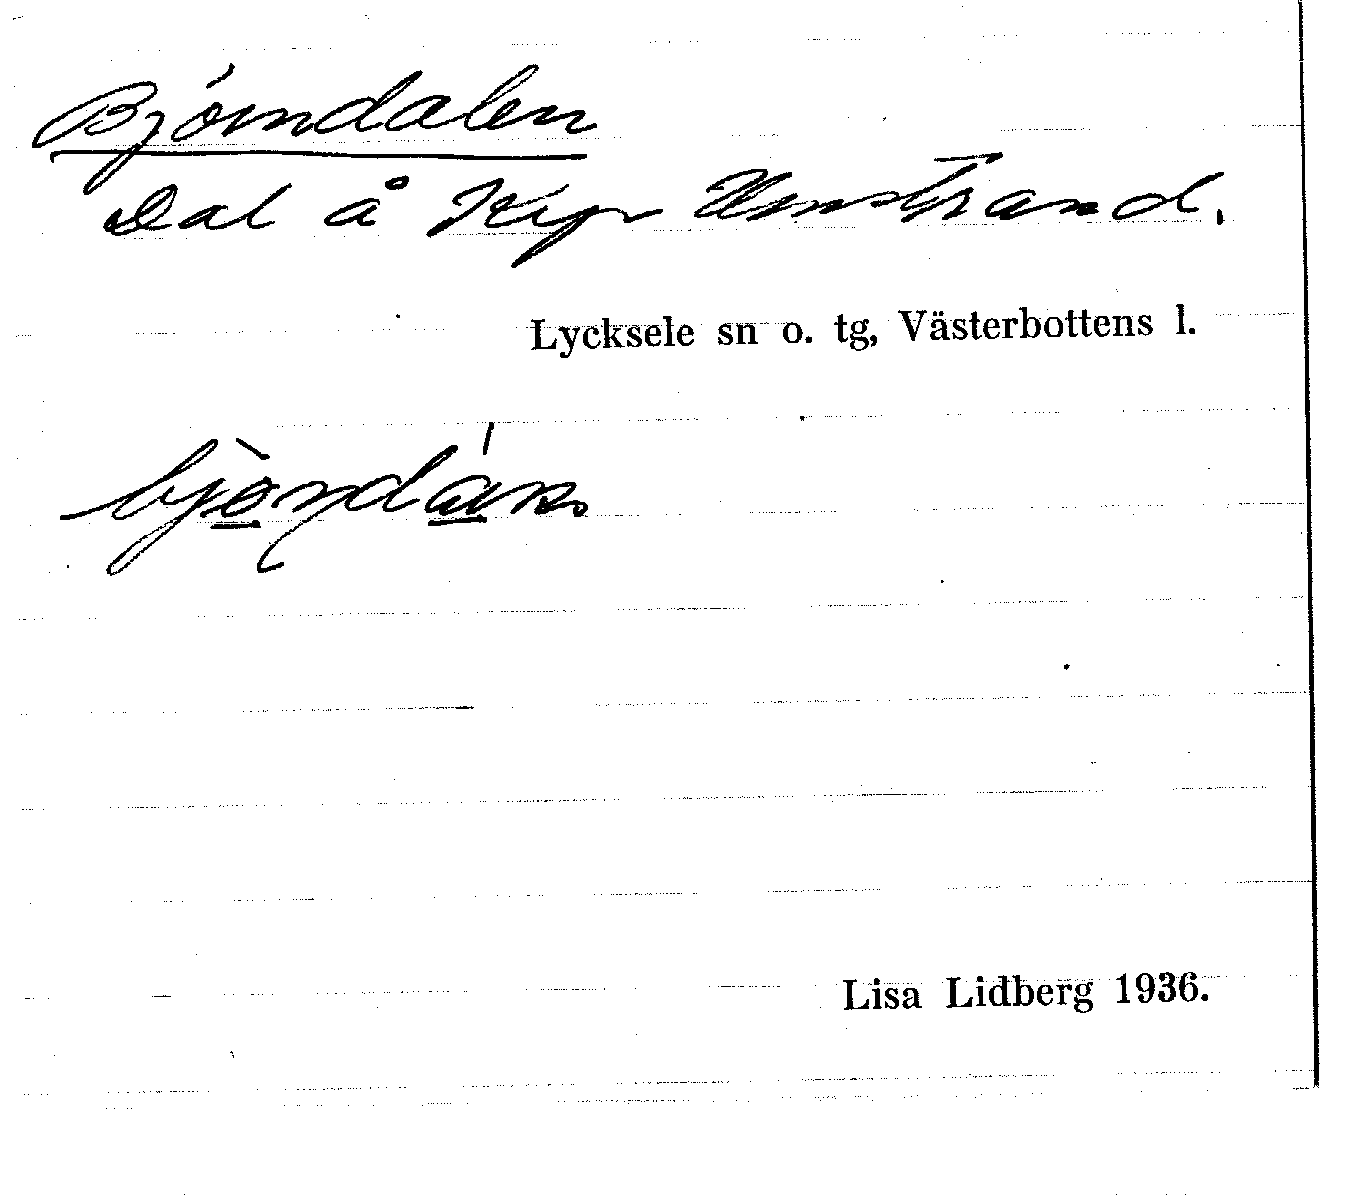 Björndalen
Dal å Krp Umstrand.
Lycksele sn o. tg, Västerbottens l.
Lisa Lidberg 1936.